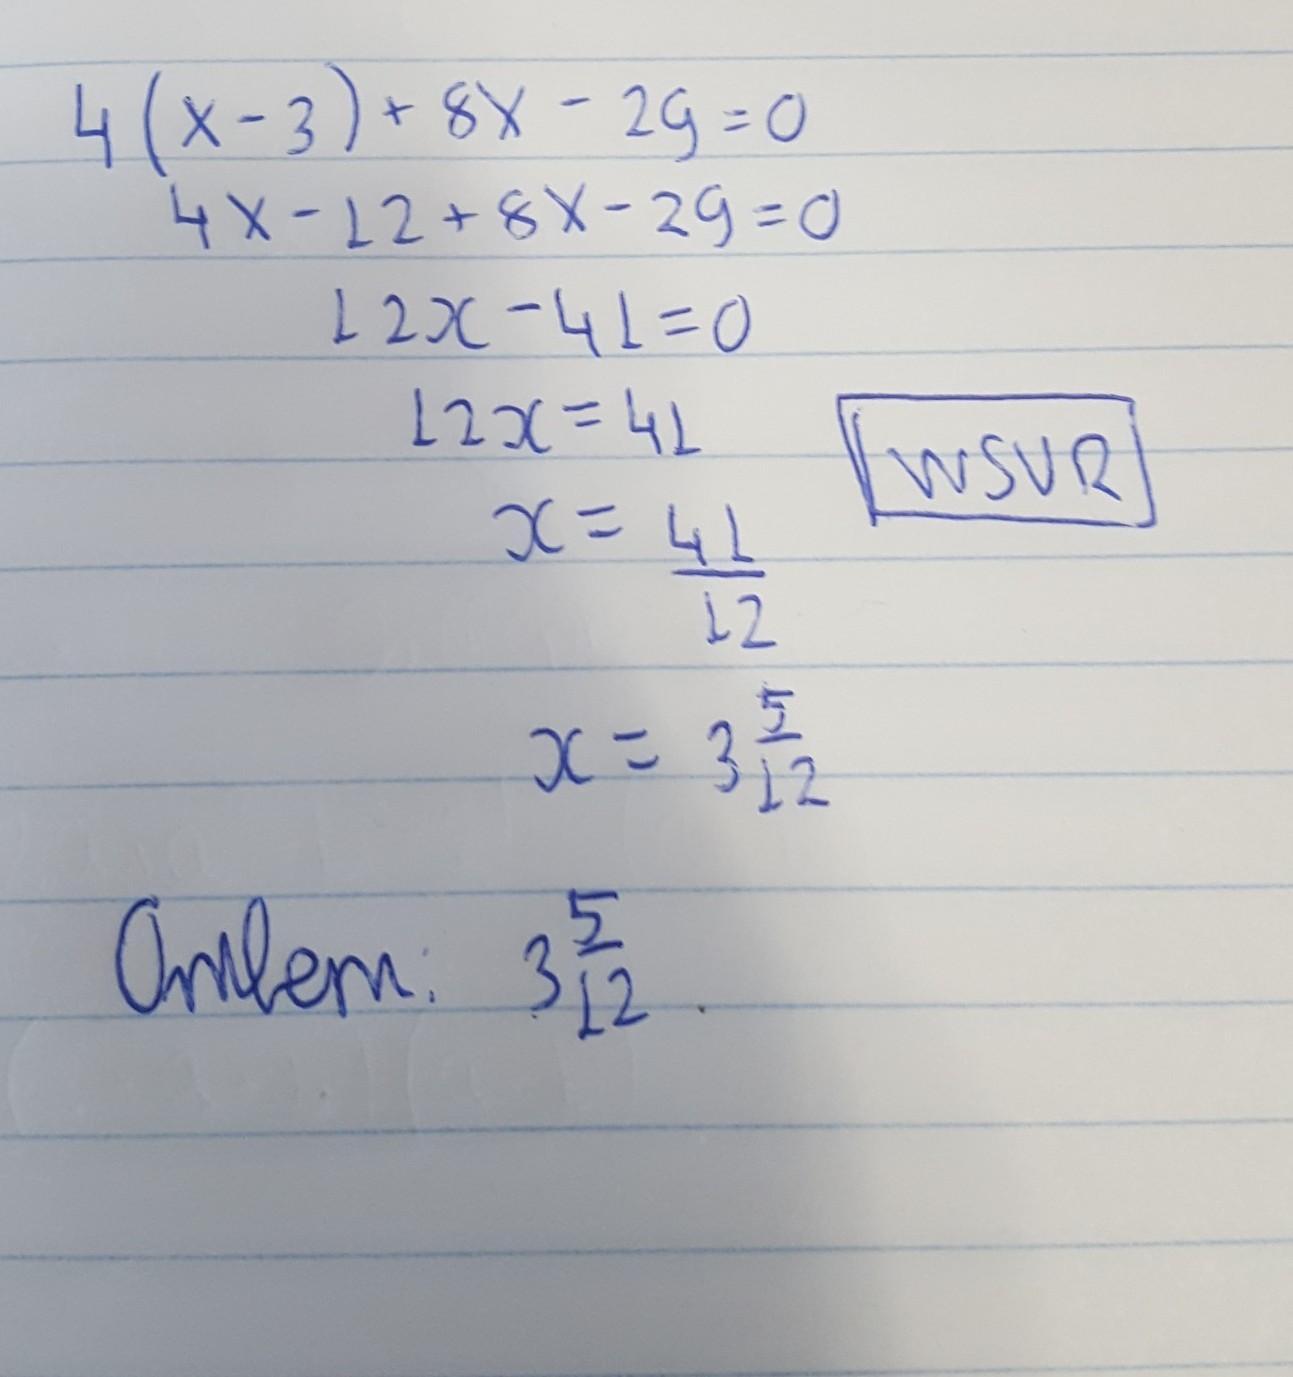 4(x-3)+8x-29=0
4x-12+8x-29=0
12x-41=0
12x=41
WSVR
x=41/12
x=3 5/12
Ответ: 3 5/12.